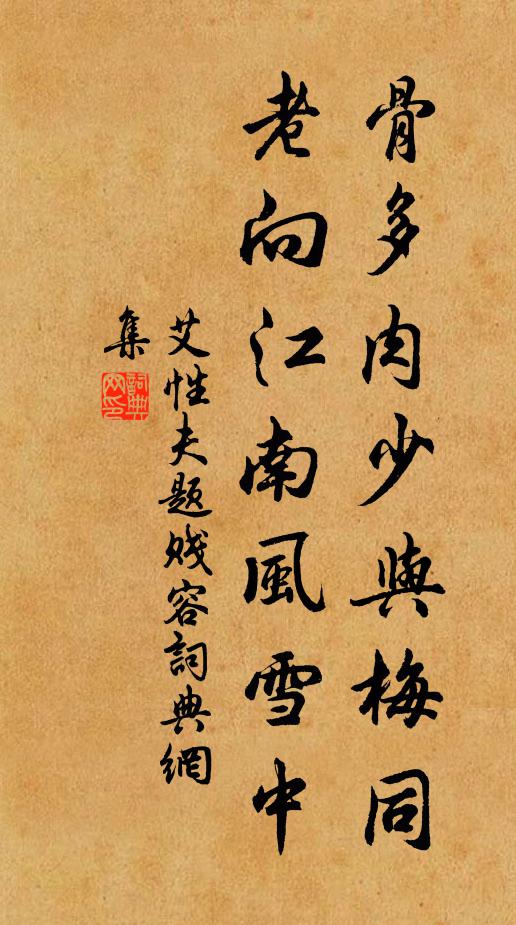 骨多肉少與梅同
老向江南風雪中
艾性夫題賤容詞典網
集
詞典
网印